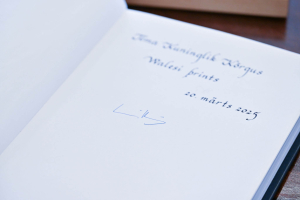 Tema Kuninglik Kõrgus
Walesi prints
20. märts 2025